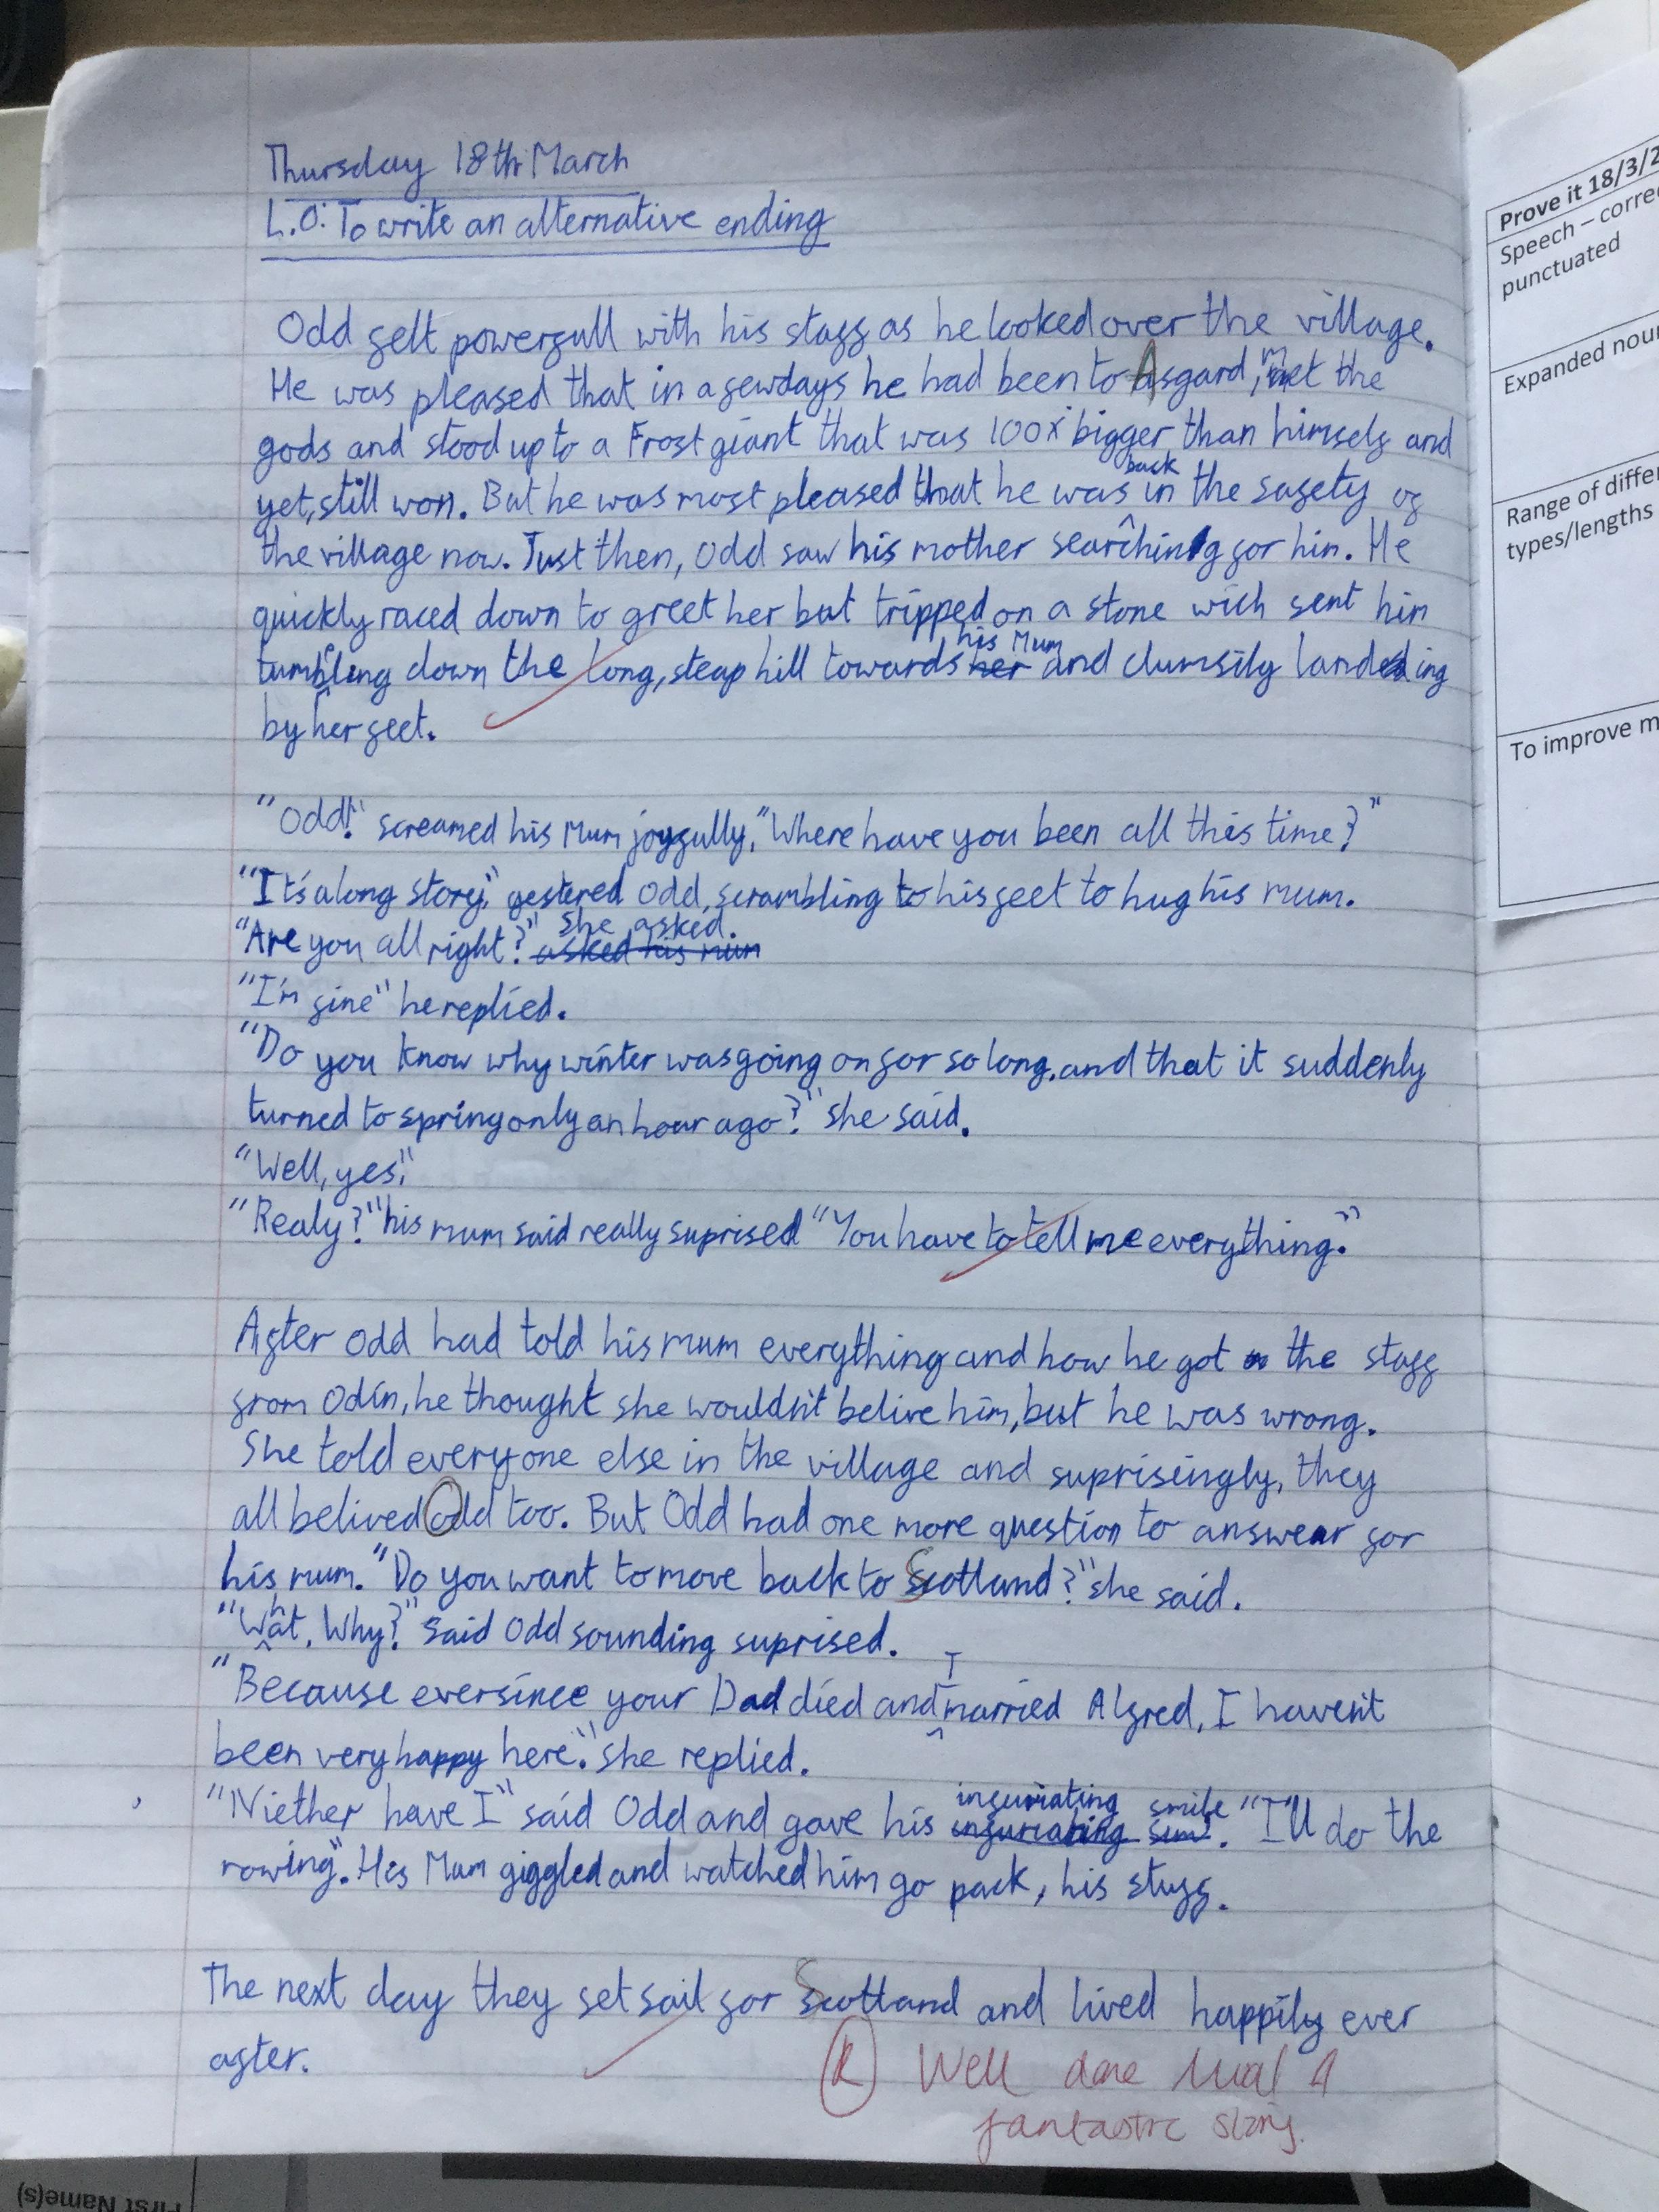 Thursday 18th March
L.O: To write an alternative ending
Odd felt powerfull with his staff as he looked over the village.
He was pleased that in a few days he had been to Asgard, met the
gods and stood up to a Frost giant that was 100x bigger than himself and
yet, still won. But he was most pleased that he was back in the safety of
the village now. Just then, Odd saw his mother searching for him. He
quickly raced down to greet her but tripped on a stone wich sent him
tumbling down the long, steap hill towards his Mum and clumsily landing
by her feet.
"Odd!" screamed his Mum joyfully, "Where have you been all this time?"
"It's a long story," gestered Odd, scrambling to his feet to hug his mum.
"Are you all right?" she asked.
"I'm fine" he replied.
"Do you know why winter was going on for so long, and that it suddenly
turned to spring only an hour ago?" she said.
"Well, yes."
"Realy?" his mum said really suprised "You have to tell me everything."
After Odd had told his mum everything and how he got the staff
from Odin, he thought she wouldn't belive him, but he was wrong.
She told everyone else in the village and suprisingly, they
all belived Odd too. But Odd had one more question to answear for
his mum. "Do you want to move back to Scotland?" she said.
"What, Why?" said Odd sounding suprised.
"Because eversince your Dad died and I married Alfred, I haven't
been very happy here." she replied.
"Niether have I" said Odd and gave his infuriating smile. "I'll do the
rowing". His Mum giggled and watched him go pack, his stuff.
The next day they set sail for Scotland and lived happily ever
after.
Well done A
fantastic story.
Prove it 18/3/2
Speech – corre
punctuated
Expanded nou
Range of differ
types/lengths
To improve m
First Name(s)